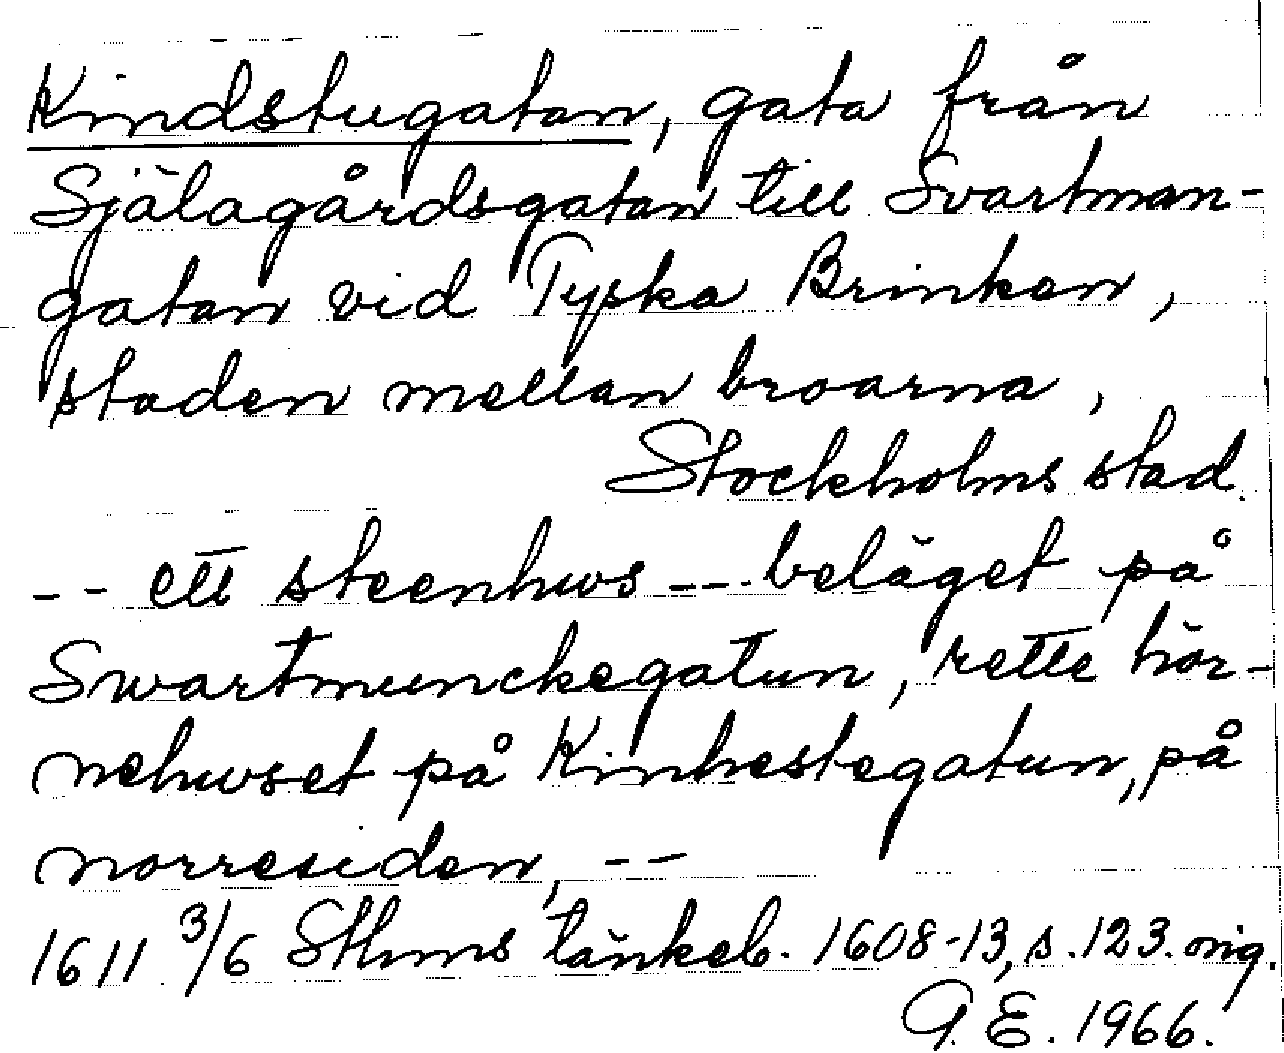 Kindstugatan, gata från
Själagårdsgatan till Svartman-
gatan vid Tyska Brinken,
staden mellan broarna,
Stockholms stad.
-- ett steenhws -- beläget på
Swartmunckegatun, rette hör-
nehwset på Kinhestegatun, på
norresiden, --
1611 3/6 Sthms tänkeb. 1608-13, s. 123. orig.
G. E. 1966.